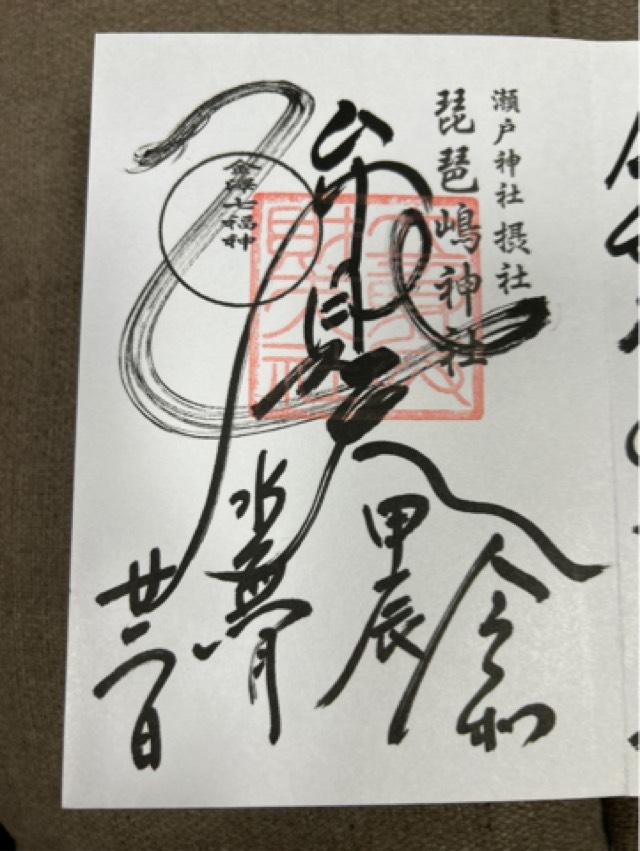 瀬戸神社 摂社
琵琶嶋神社
弁財天
金澤七福神
令和
甲辰
水無月
廿二日